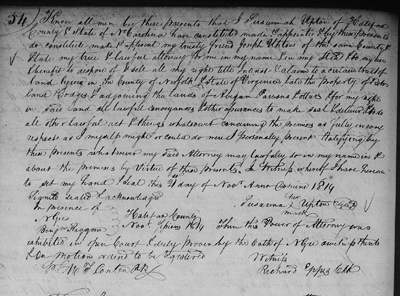 54) Know all men by these presents that I Susannah Upton of Halifax
County & State of N Carolina have constituted made & appointed & by these presents
do constitute make & appoint my trusty friend Joseph Upton of the same County &
State my true & lawful attorney for me in my name & in my stead & to my use
benefit to dispose of & sell all my right Interest & Claim to a certain tract of
land lying in the County of Norfolk & State of Virginia late the property of
land Hodges & adjoining the lands of Parsons & others & for my right
in said land all lawful conveyances & other assurances to make seal & deliver & to do
all other lawful act & things whatsoever concerning the premises as fully in every
respect as I myself might or could do were I personally present Ratifying by
these presents whatsoever my said Attorney may lawfully do in my name in &
about the premises by Virtue of these presents. In Witness whereof I have hereunto
to set my hand & seal this day of Novr Anno Domini 1814
Signed Sealed & acknowledged
in presence of
Susanna Upton
mark
Halifax County
Novr 1814 Then this Power of Attorney was
exhibited in open Court & duly proved by the oath of
On motion ordered to be registered
Witness
Richard Eppes Clk